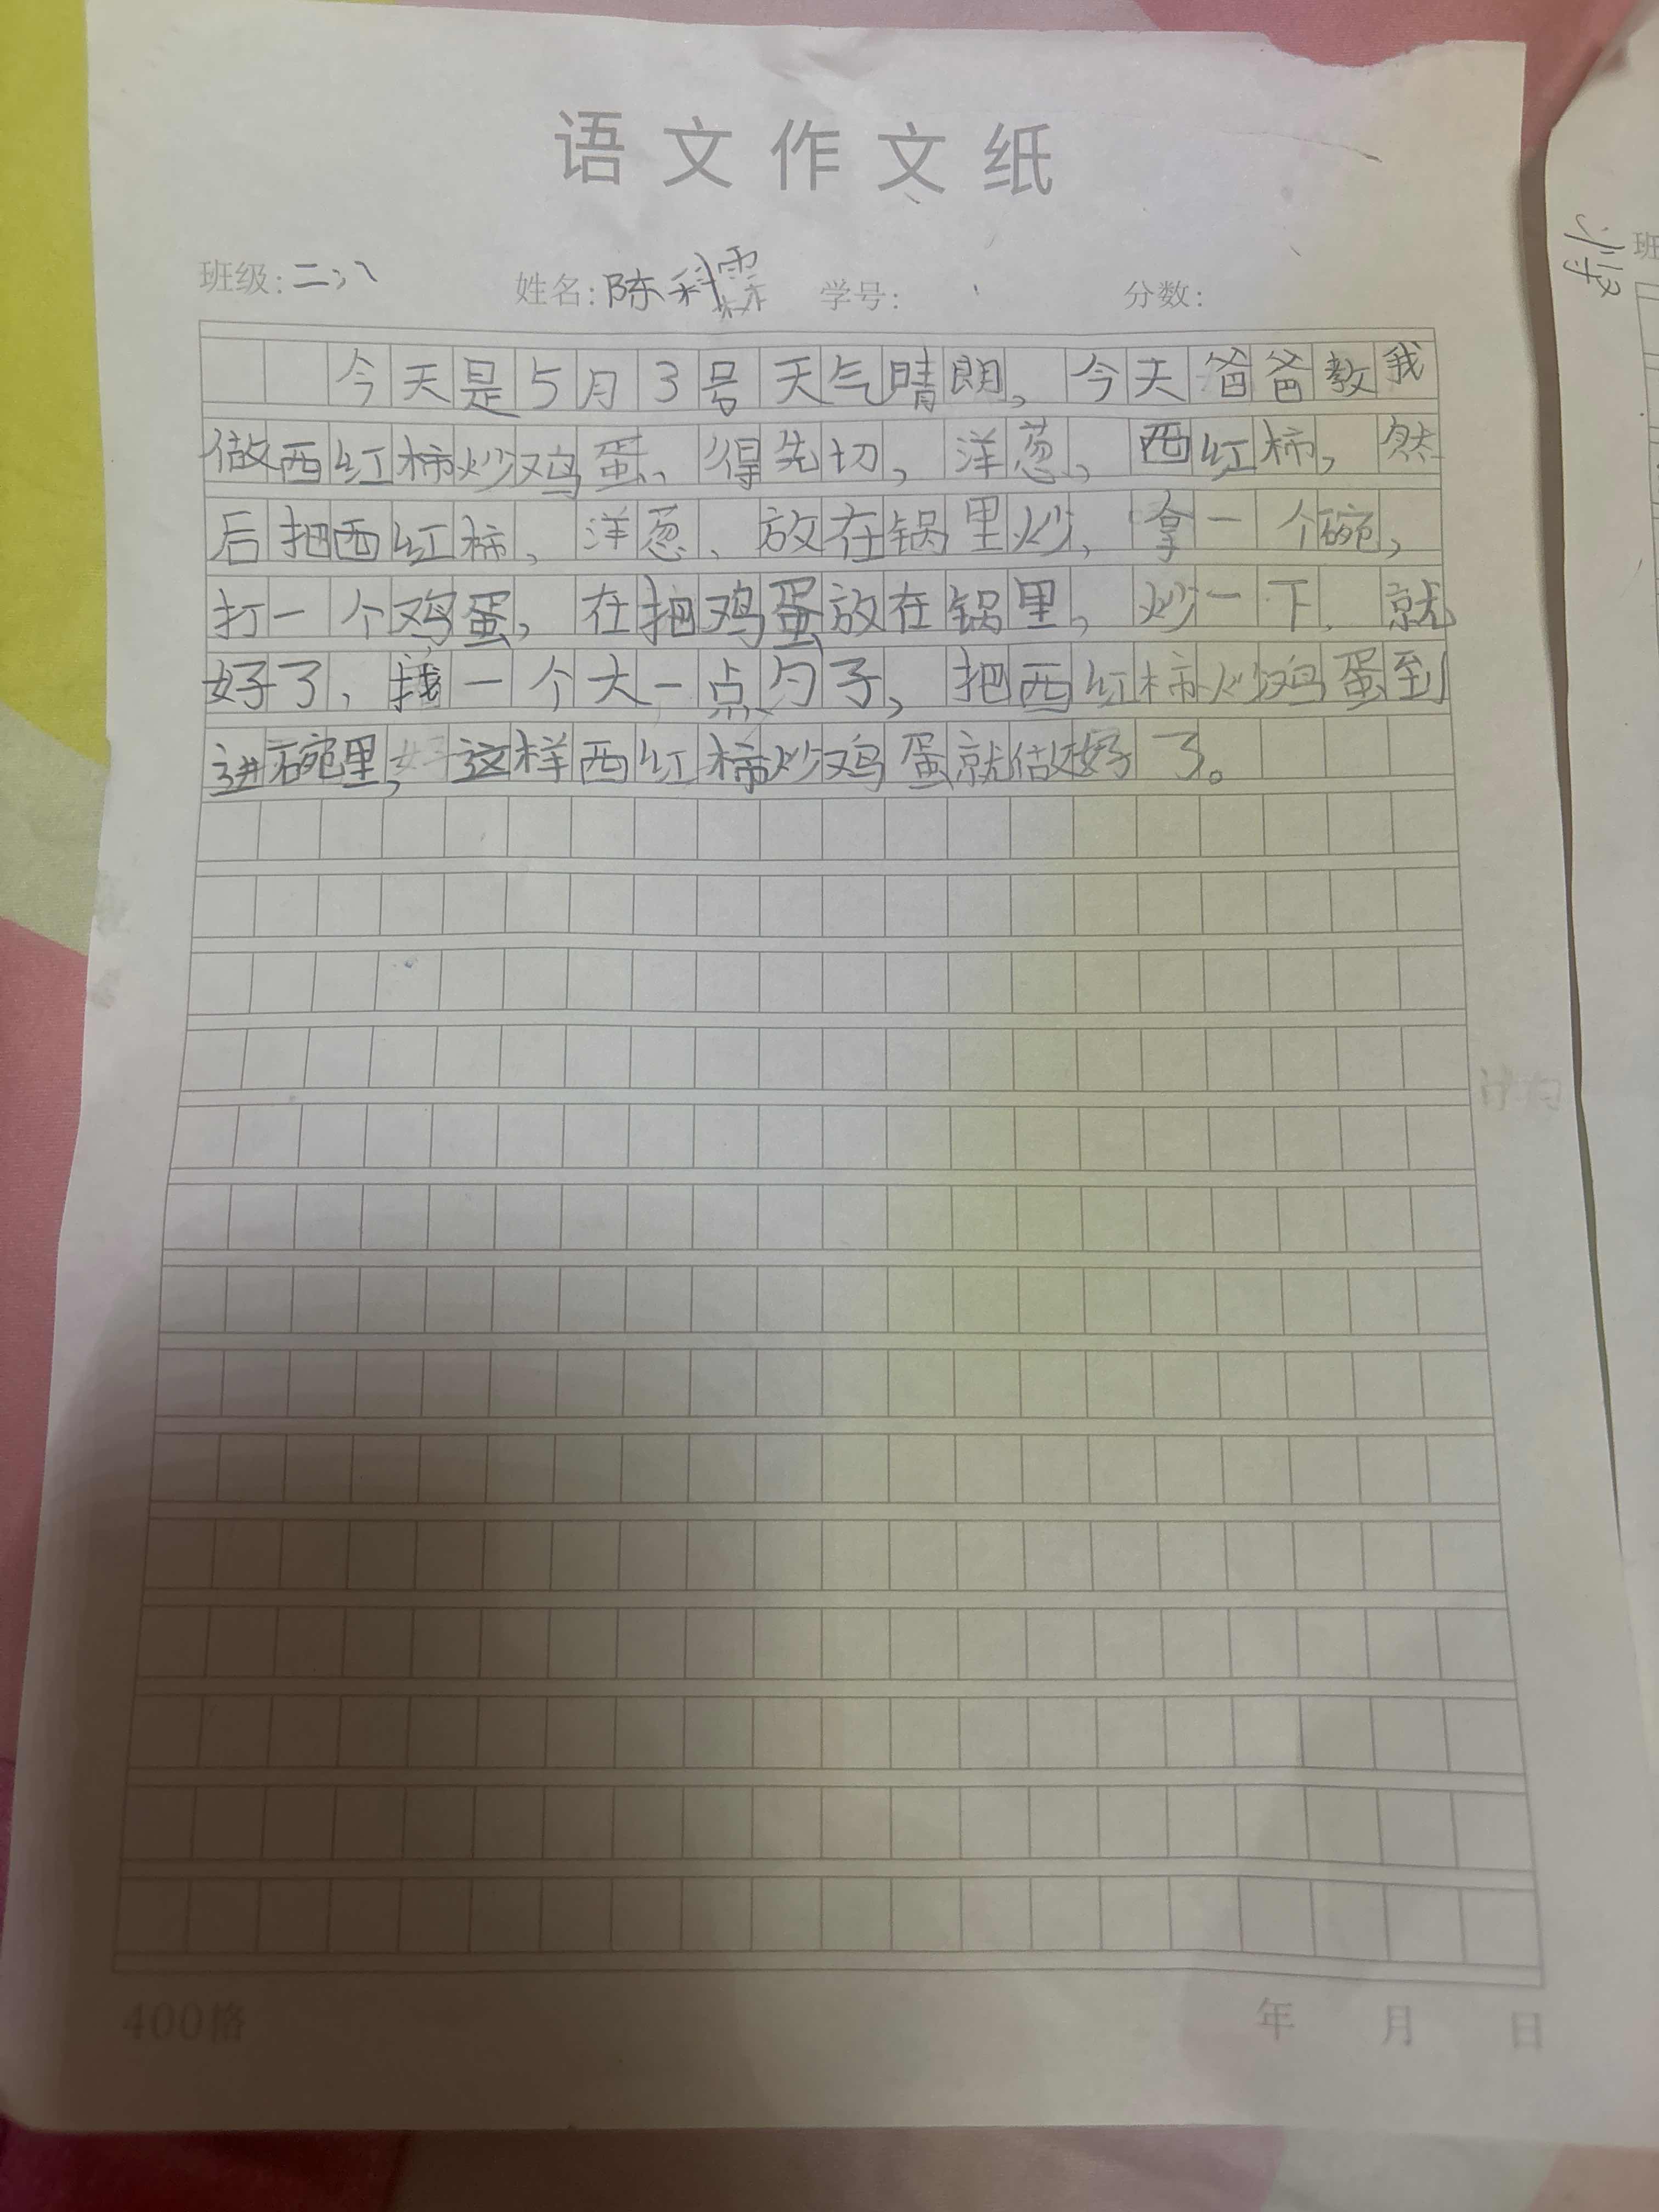 语文作文纸
班级：二、八 姓名：陈科霖 学号： 分数：
今天是5月3号天气晴朗，今天爸爸教我
做西红柿炒鸡蛋、得先切，洋葱，西红柿，然
后把西红柿，洋葱、放在锅里炒，拿一个碗，
打一个鸡蛋，在把鸡蛋放在锅里，炒一下，就
好了，找一个大一点勺子，把西红柿炒鸡蛋到
进碗里，这样西红柿炒鸡蛋就做好了。
400格 年 月 日